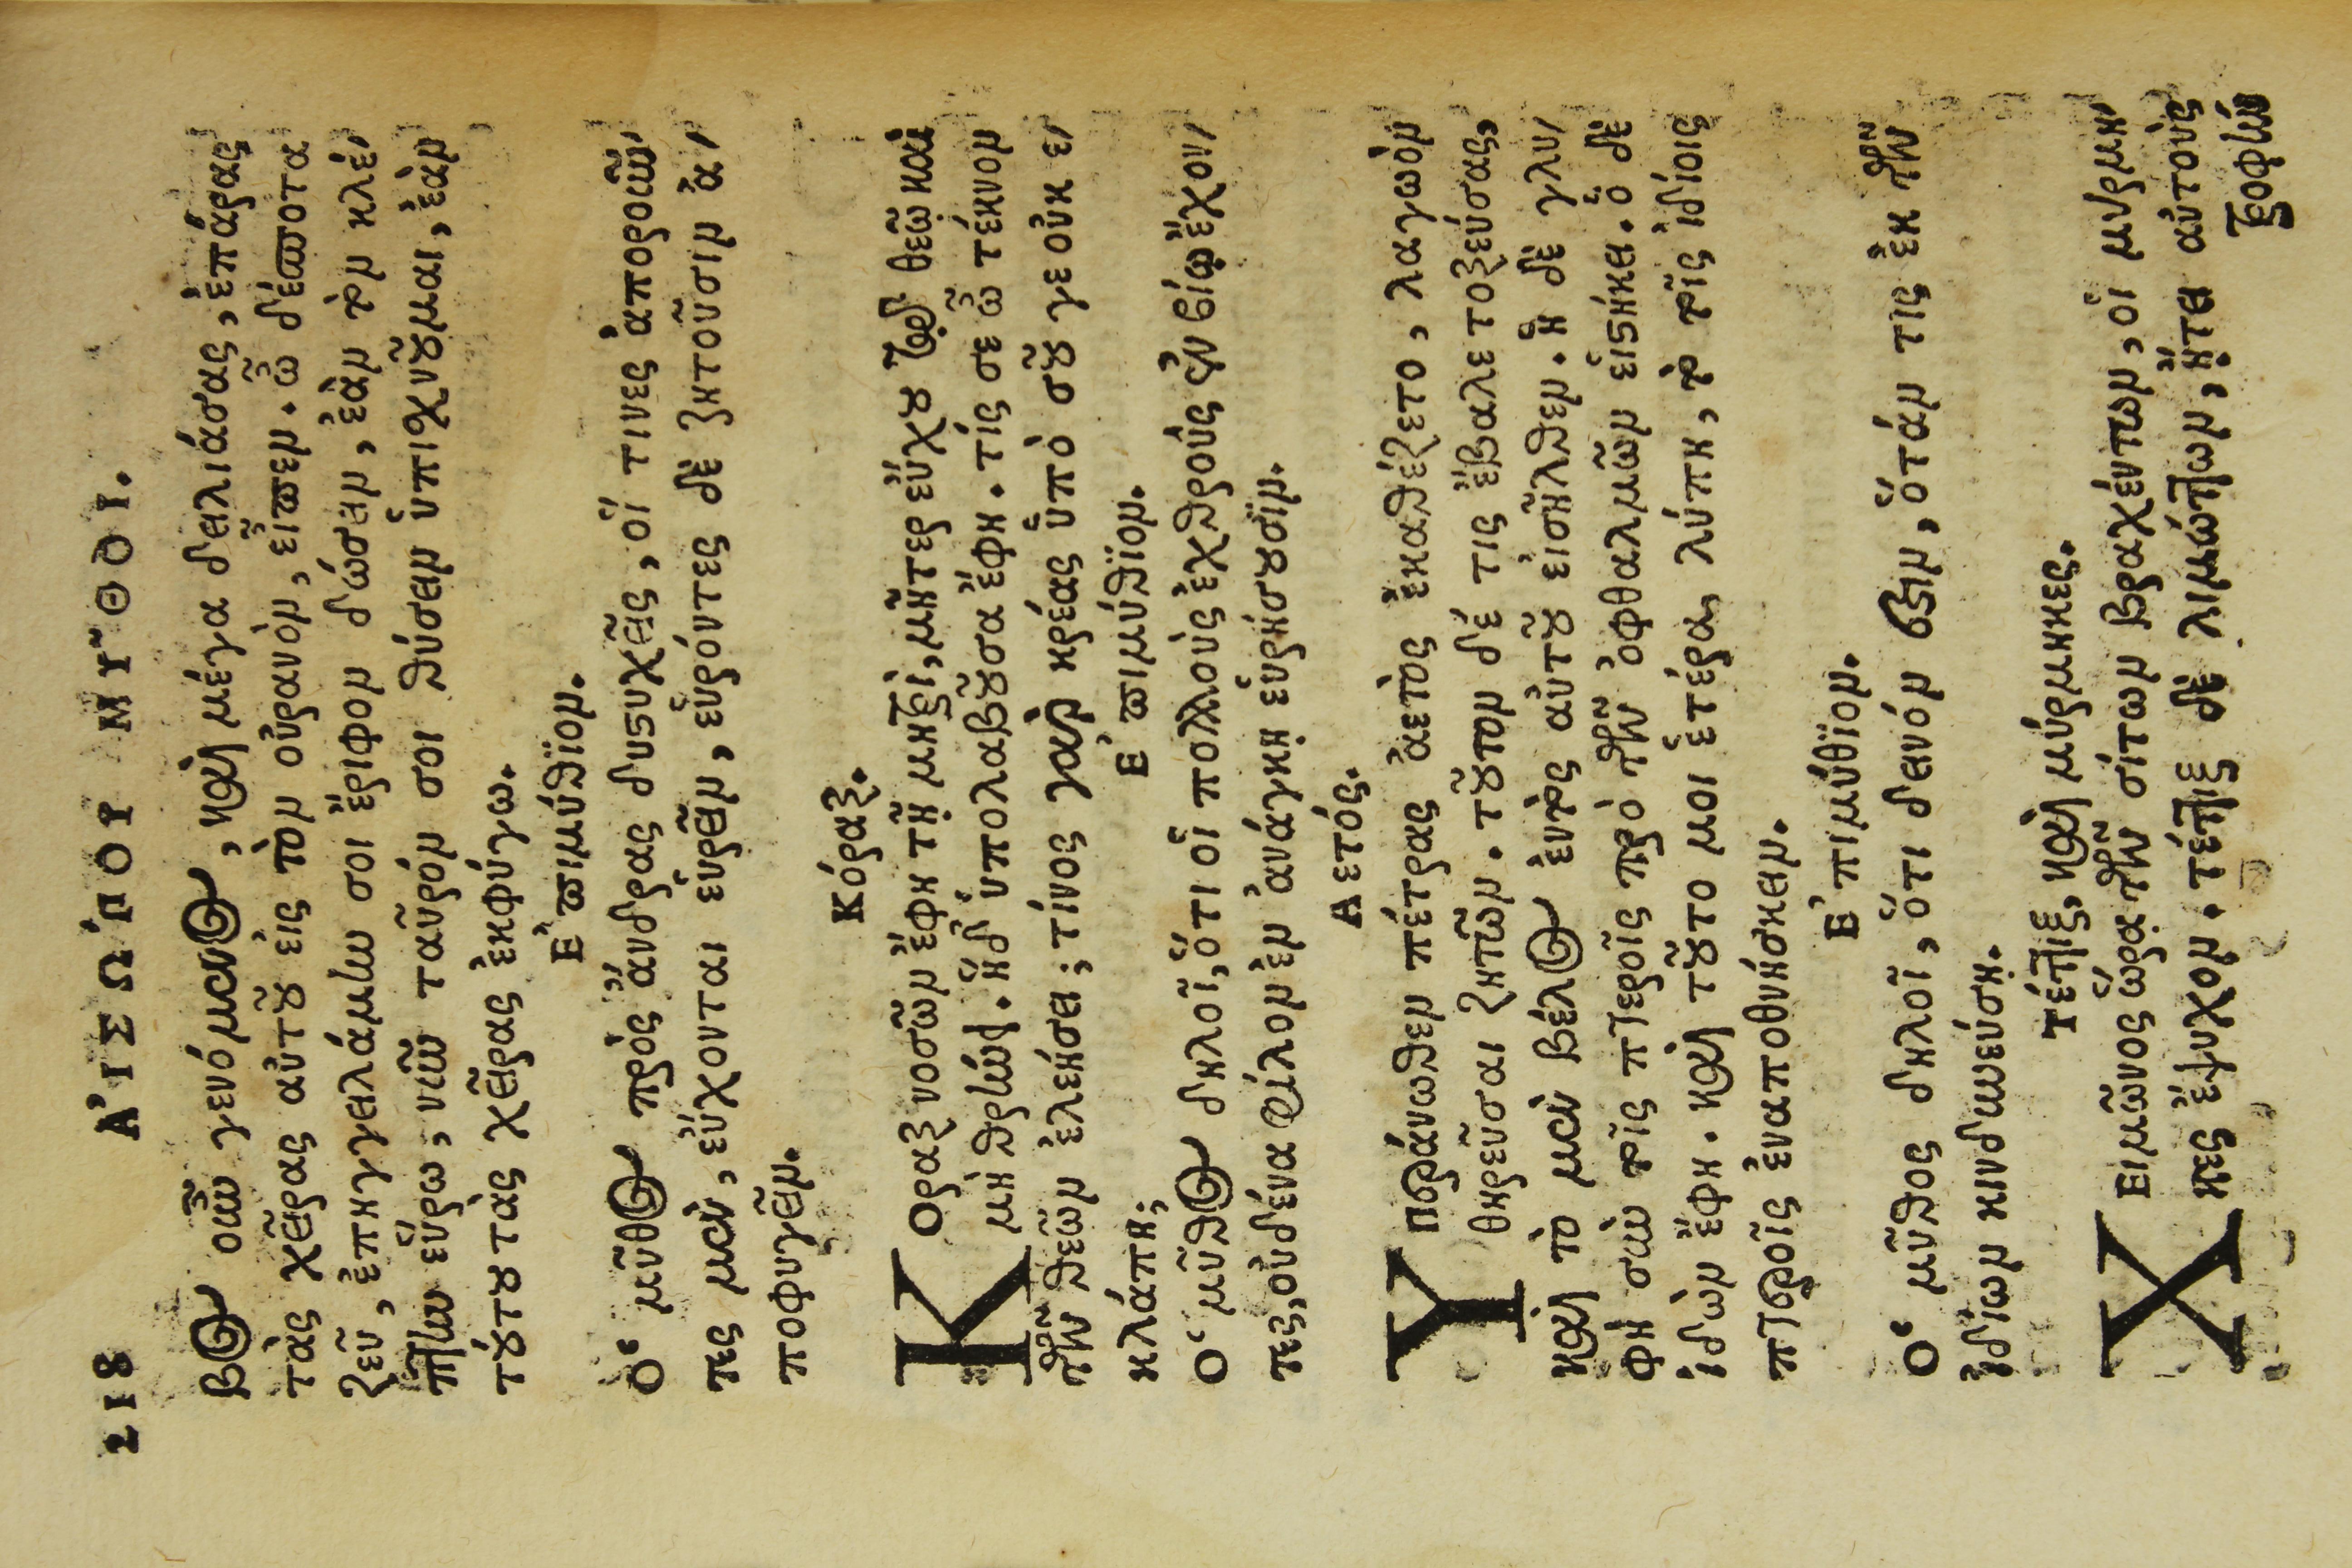 218 ΑἸΣΩΠΟΥ ΜΥ͂ΘΟΙ.
βος οὖν γενόμενος, καὶ μέγα δειλιάσας, ἐπάρας
τὰς χεῖρας αὐτοῦ εἰς τὸν οὐρανὸν, εἶπεν. ὦ δέσποτα
ζεῦ, ἐπηγγειλάμην σοι ἔριφον δώσειν, ἐὰν τὸν κλέ/
πτην εὕρω, νῦν ταῦρόν σοι θύσειν ὑπισχνοῦμαι, ἐὰν
τούτου τὰς χεῖρας ἐκφύγω.
Ἐπιμύθϊον.
Ὁ μῦθος πρὸς ἄνδρας δυστυχεῖς, οἵ τινες ἀποροῦν/
τες μὲν, εὔχονται εὑρεῖν, εὑρόντες δὲ ζητοῦσιν ἀ/
ποφυγεῖν.
Κόραξ.
Κοραξ νοσῶν ἔφη τῇ μητρὶ, μῆτερ εὔχου τῷ θεῷ καὶ
μὴ θρήνει. ἡ δ' ὑπολαβοῦσα ἔφη. τίς σε ὦ τέκνον
τῶν θεῶν ἐλεήσει; τίνος γὰρ κρέας ὑπὸ σοῦ γε οὐκ ε/
κλάπη;
Ὁ μῦθος δηλοῖ, ὅτι οἱ πολλοὺς ἐχθροὺς ἐν βίῳ ἔχον/
Ἐπιμύθϊον.
τες, οὐδένα φίλον ἐν ἀνάγκῃ εὑρήσουσϊν.
Αετός.
Υπεράνωθεν πέτρας ἀετὸς ἐκαθέζετο, λαγωὸν
θηρεῦσαι ζητῶν. τοῦτον δέ τις ἔβαλε τοξεύσας,
καὶ τὸ μὲν βέλος ἐντὸς αὐτοῦ εἰσῆλθεν. ἡ δὲ γλυ/
φὴ σὺν τοῖς πτεροῖς πρὸ τῶν ὀφθαλμῶν εἱστήκει. ὁ δὲ
ἰδὼν ἔφη. καὶ τοῦτό μοι ἑτέρα λύπη, τὸ τοῖς ἰδίοις
πτεροῖς ἐναποθνήσκειν.
Ἐπιμύθϊον.
Ὁ μῦθος δηλοῖ, ὅτι δεινόν ἐστιν, ὅτάν τις ἐκ τῶν
ἰδίων κινδυνεύσῃ.
Τέττιξ, καὶ μύρμηκες.
Χειμῶνος ὥρᾳ τῶν σίτων βραχέντων, οἱ μύρμη/
κες ἔψυχον. τέττιξ δὲ λιμώττων, ᾔτει αὐτοὺς
τροφήν